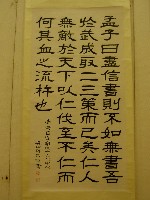 孟子曰盡信書則不如無書吾
於武成取二三策而已矣仁人
無敵於天下以仁伐至不仁而
何其血之流杵也